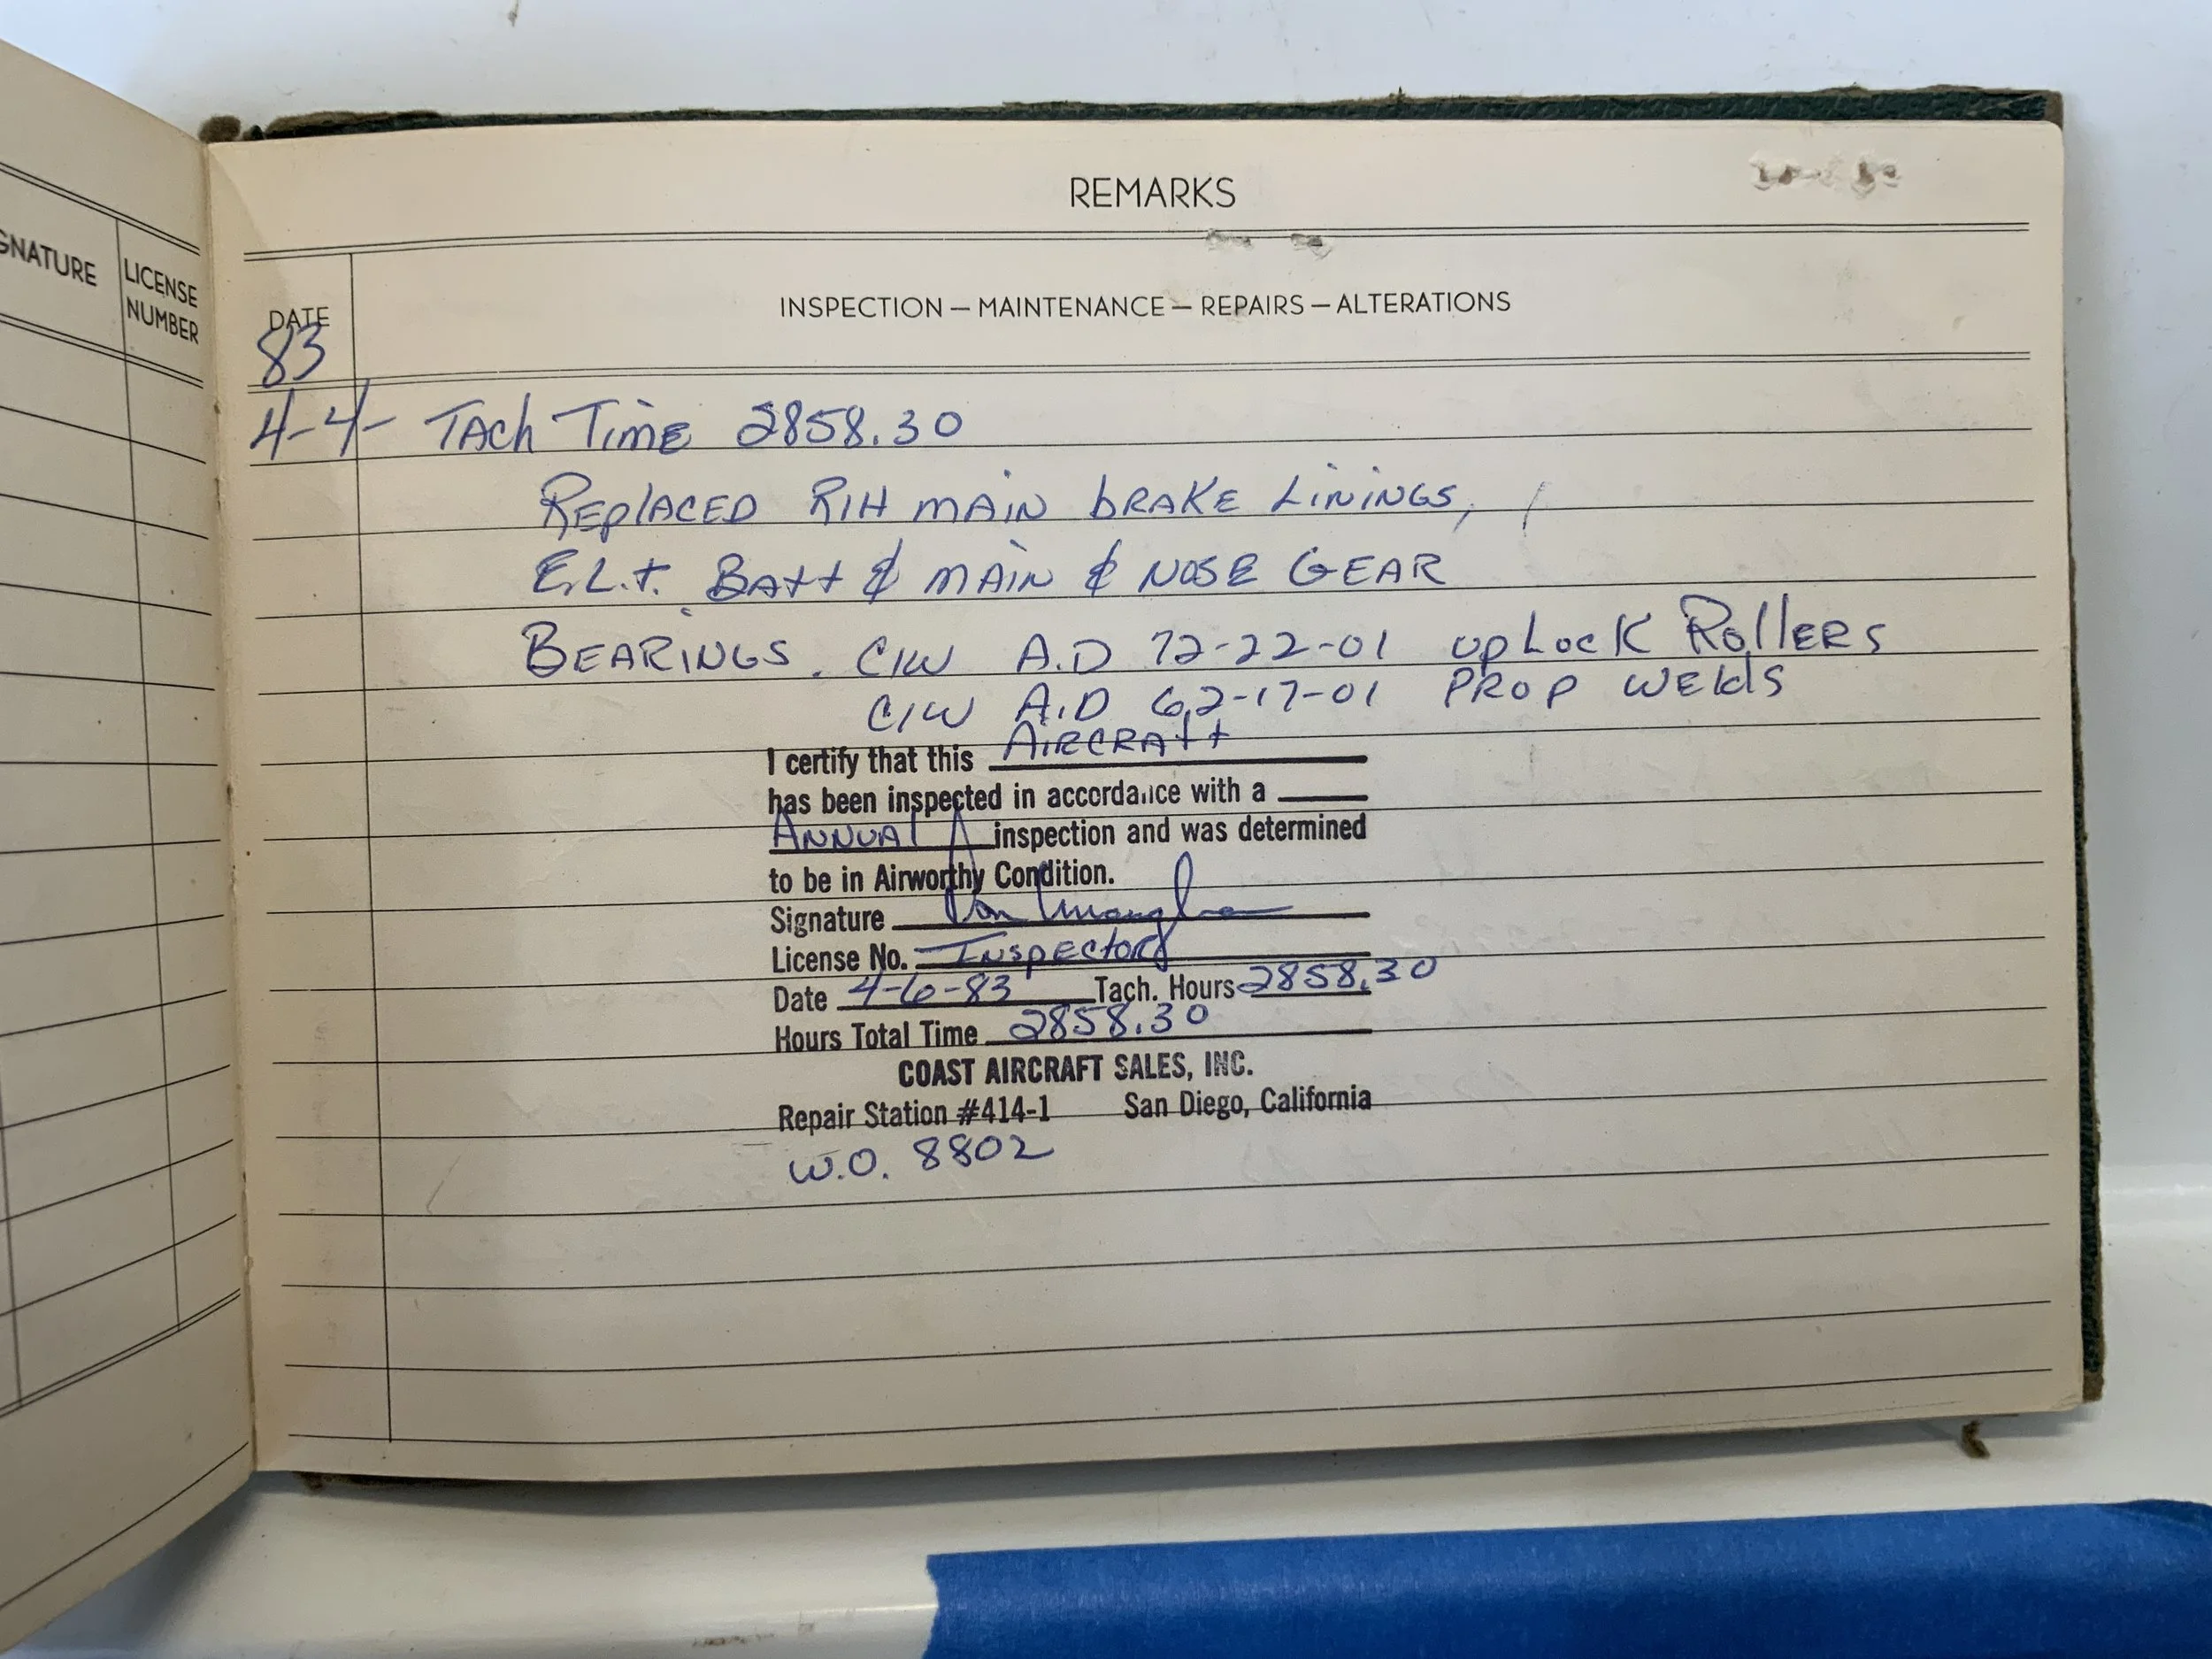 GNATURE
LICENSE
NUMBER
REMARKS
DATE
INSPECTION — MAINTENANCE — REPAIRS — ALTERATIONS
83
4-4- TACh TimE 2858.30
REplACED R/H MAIN bRAKE LININGS,
E.L.t. BAtt & MAIN & NOSE GEAR
BEARINGS. C/W A.D 72-22-01 upLocK RollERS
C/W A.D 62-17-01 PROP WElds
I certify that this AIRCRAft
has been inspected in accordance with a
ANNUAl inspection and was determined
to be in Airworthy Condition.
Signature
License No. INSPECtOR
Date 4-6-83 Tach. Hours 2858.30
Hours Total Time 2858.30
COAST AIRCRAFT SALES, INC.
Repair Station #414-1 San Diego, California
W.O. 8802